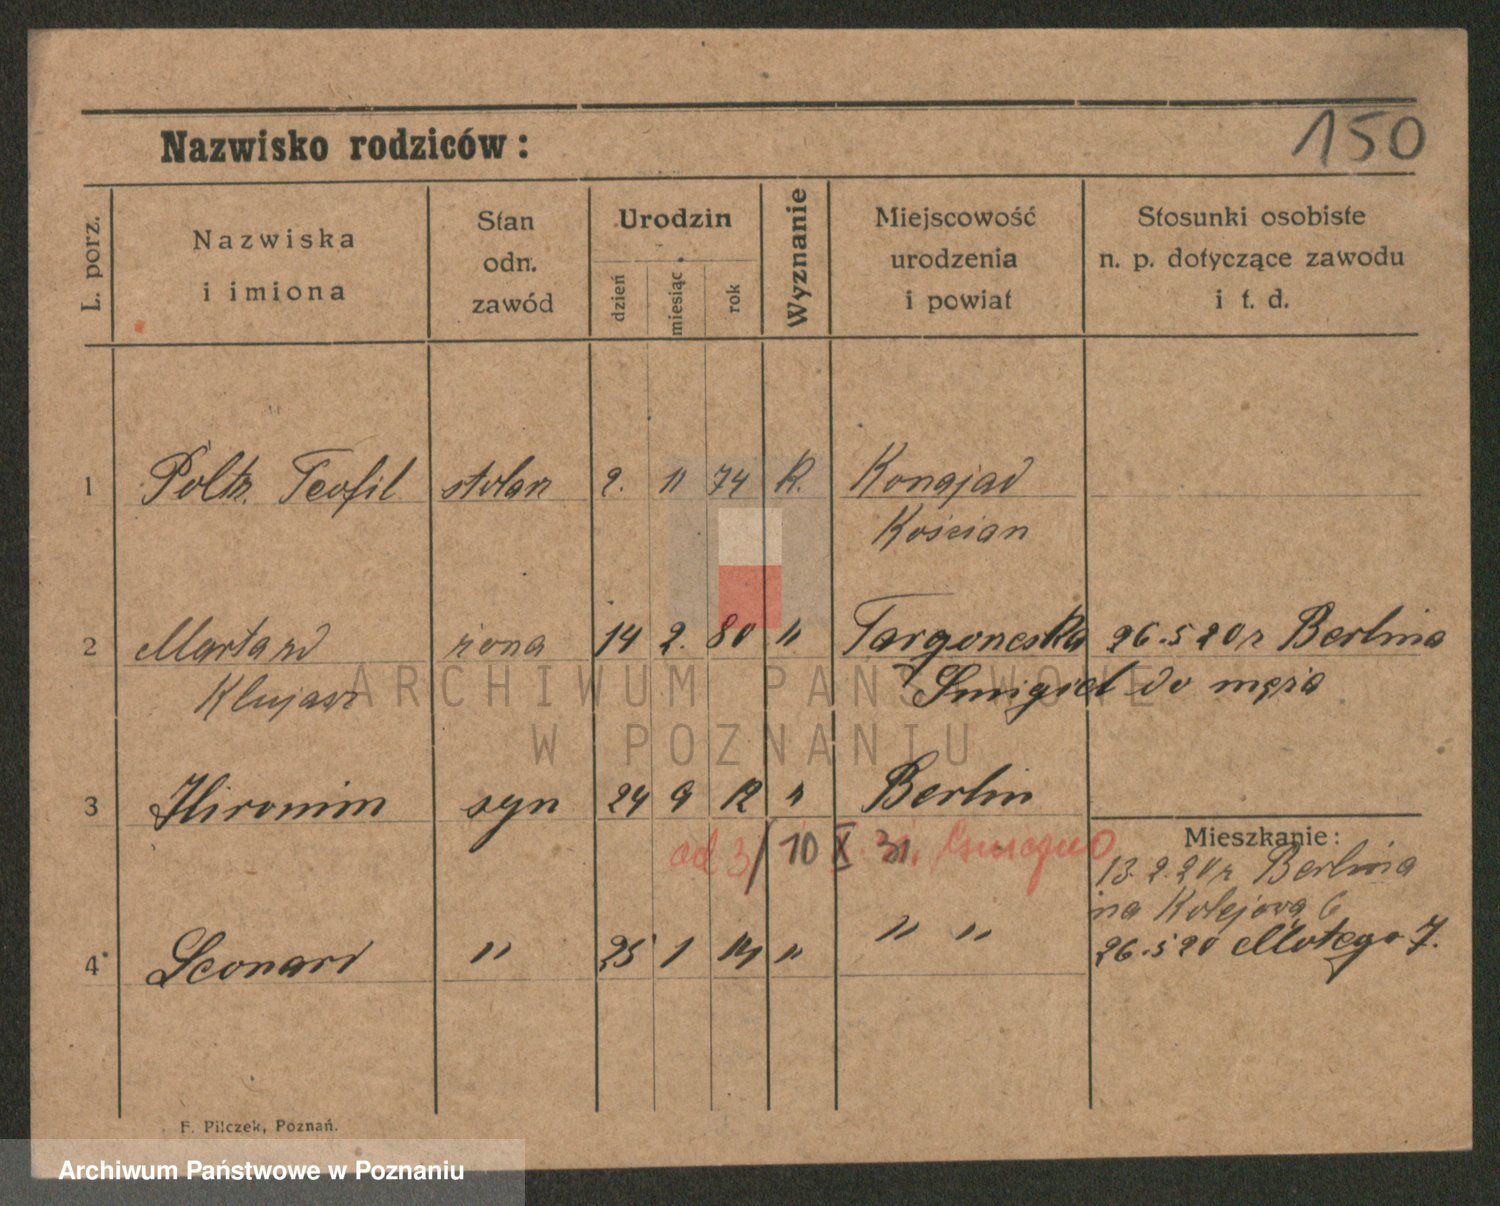 150
Nazwisko rodziców:
L. porz.
Nazwiska
i imiona
Stan
odn.
zawód
Urodzin
dzień
miesiąc
rok
Wyznanie
Miejscowość
urodzenia
i powiat
Stosunki osobiste
n. p. dotyczące zawodu
i t. d.
1 Teofil stolarz 2. 11 74 K. Konojad
Kościan
2 Marta zd żona 14 2. 80 " 26.5 20 r Berlina
Śmigiel do męża
ARCHIWUM PAŃSTWOWE
W POZNANIU
3 Hironim syn 24 9 12 " Berlin
Mieszkanie:
od 3/10 X 31.
13.2.20 r Berlina
na Kolejową 6
4 Leonard " 25 1 14 " " "
26.5 20 Małego 7.
F. Pilczek, Poznań.
Archiwum Państwowe w Poznaniu